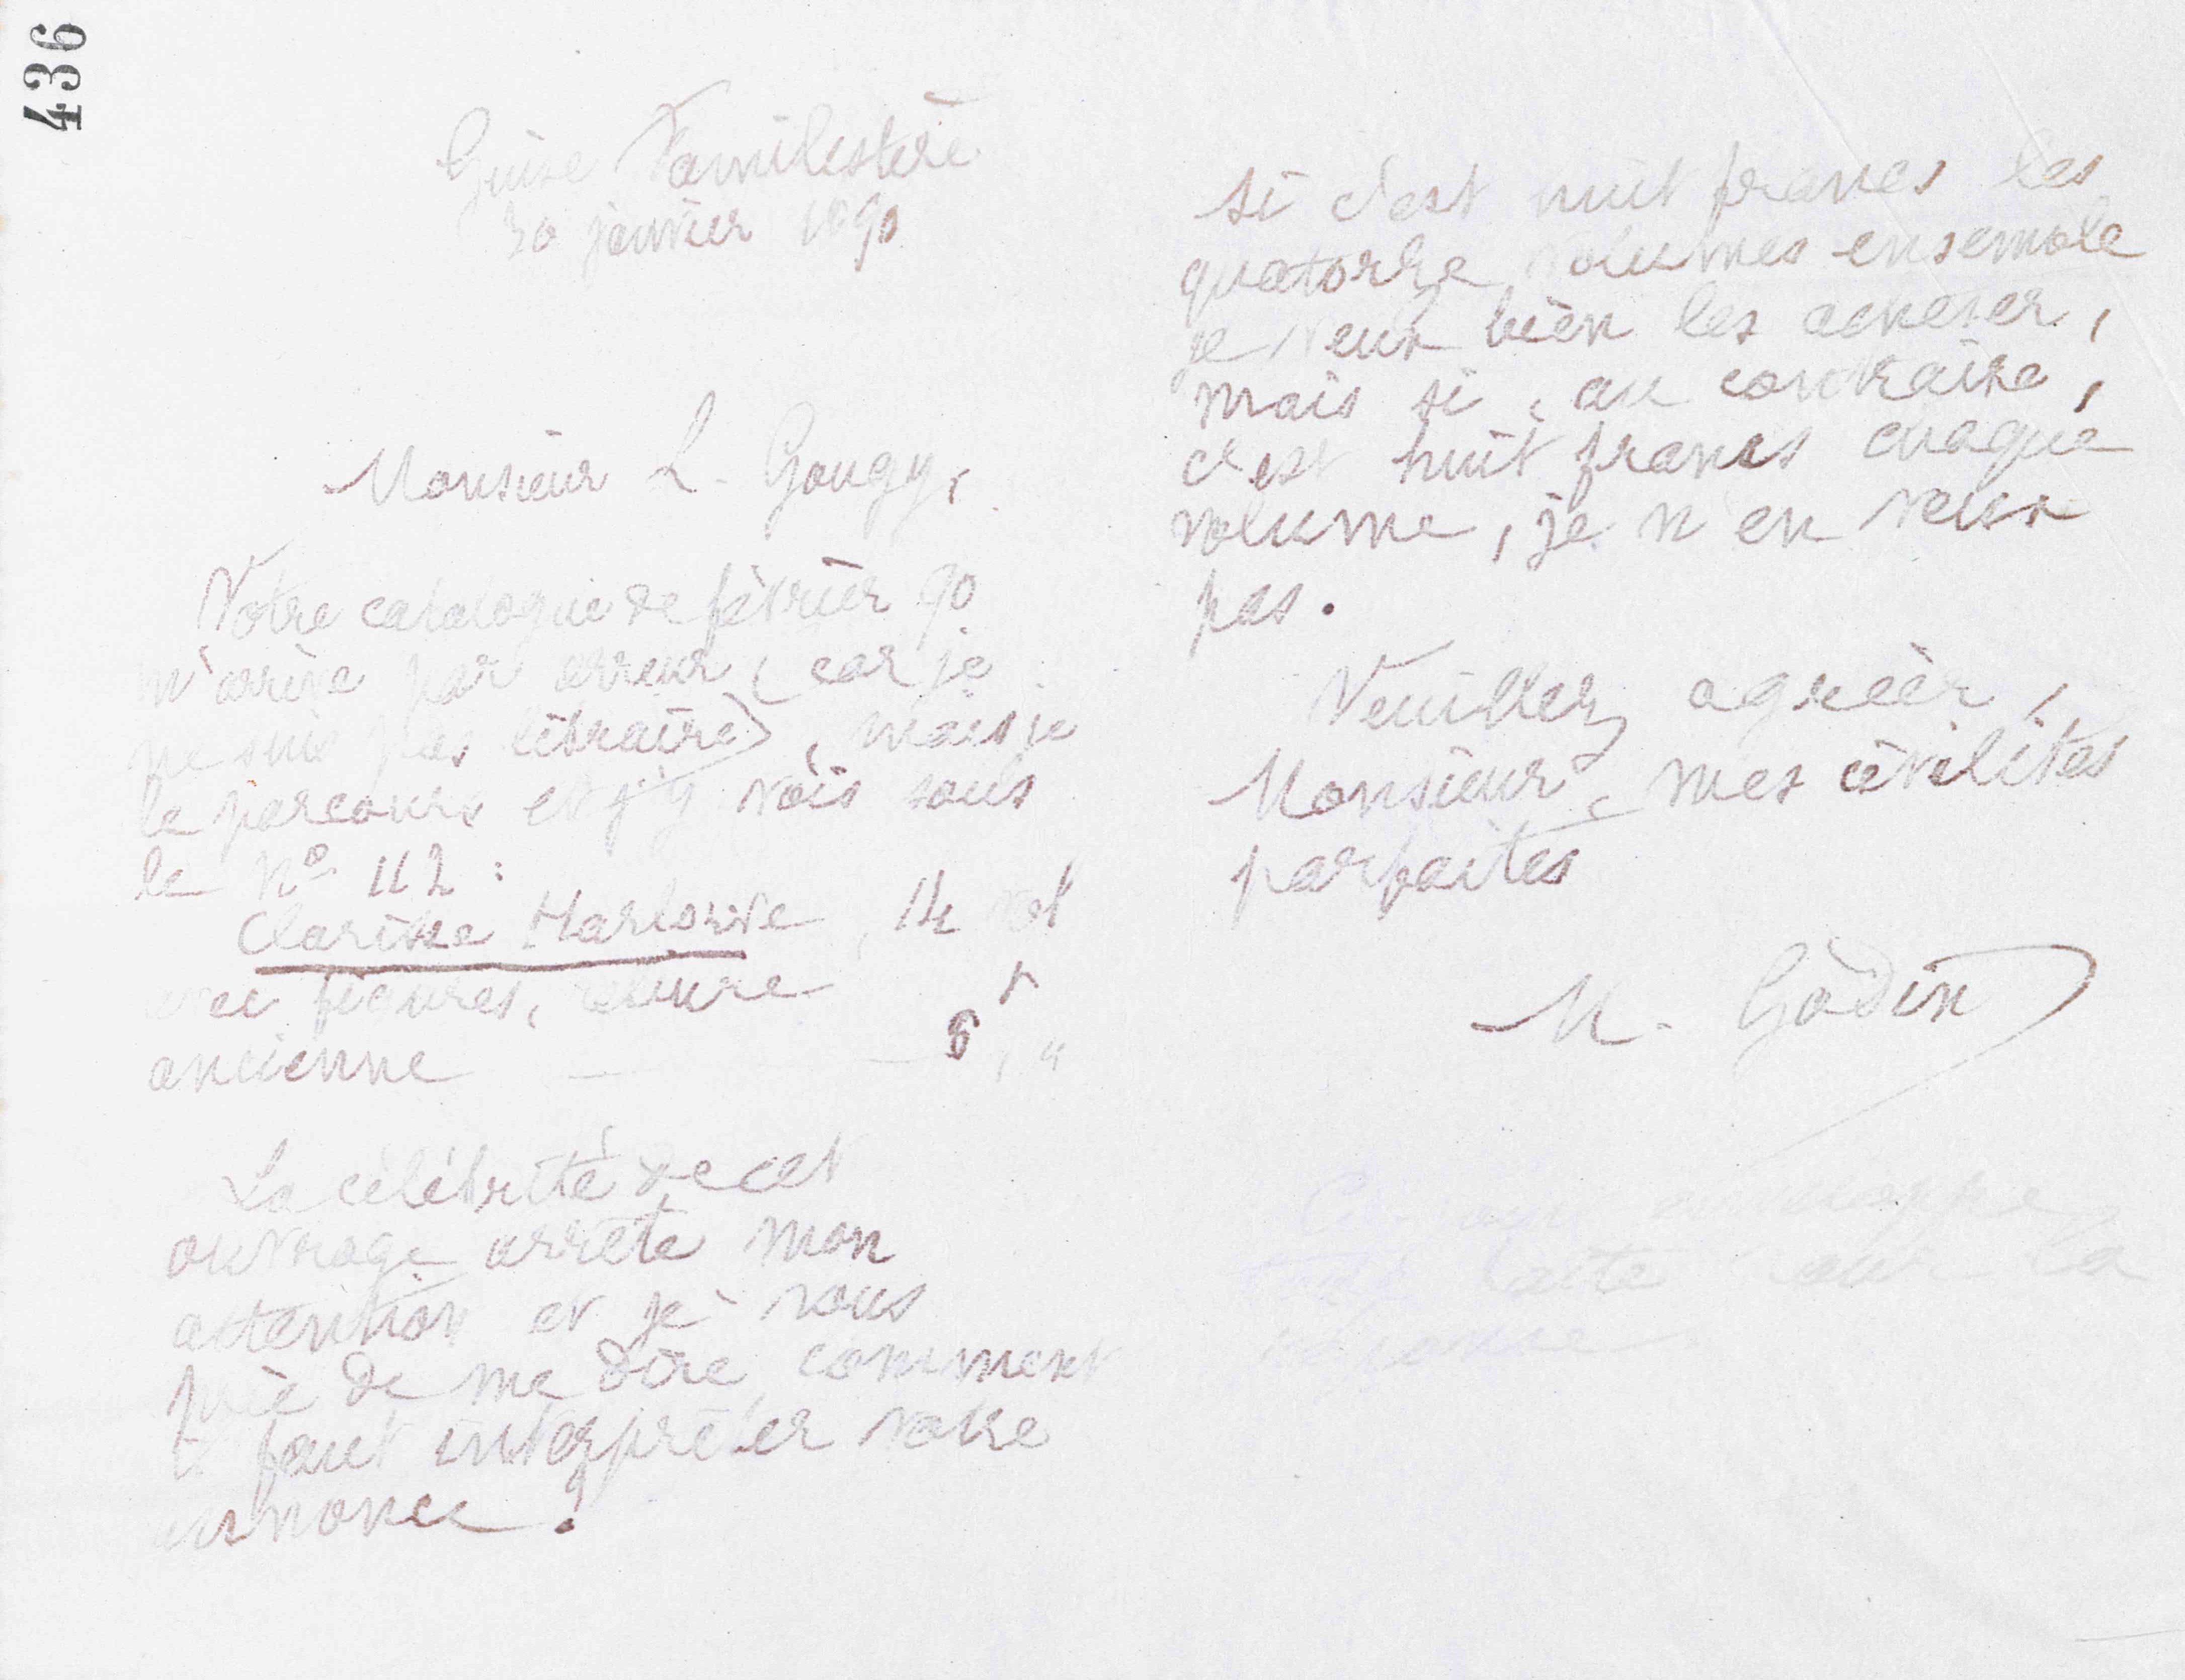 436
Guise Familistère
30 janvier 1890
Monsieur L. Gougy,
Votre catalogue de février 90
m'arrive par erreur (car je
ne suis pas libraire), mais je
le parcours et j'y vois sous
le nº 112 :
Clarisse Harlowe, 14 vol
avec figures, reliure
ancienne — — 8f,"
La célébrité de cet
ouvrage arrête mon
attention et je vous
prie de me dire comment
il faut interpréter votre
annonce ?
si c'est huit francs les
quatorze volumes ensemble
je veux bien les acheter,
mais si, au contraire,
c'est huit francs chaque
volume, je n'en veux
pas.
Veuillez agréer,
Monsieur, mes civilités
parfaites
M. Godin
enveloppe
toute faite pour la
réponse